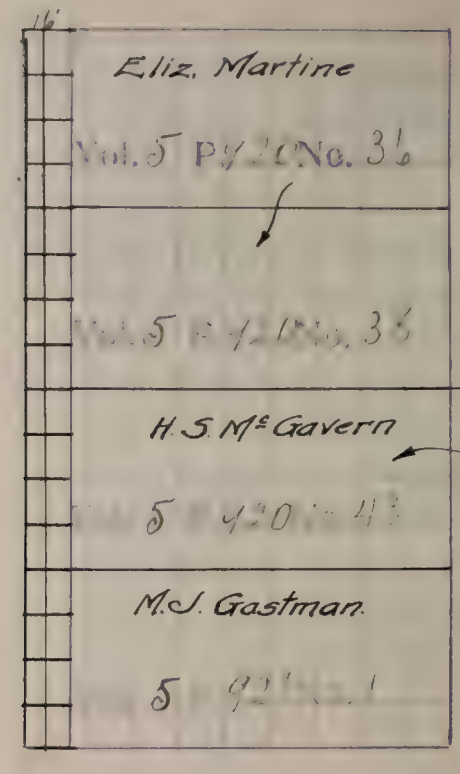 16
Eliz. Martine
Vol. 5 P. 420 No. 36
Vol. 5 P. 420 No. 36
H. S. Mc Gavern
5 P. 420 No. 43
M. J. Gastman.
5